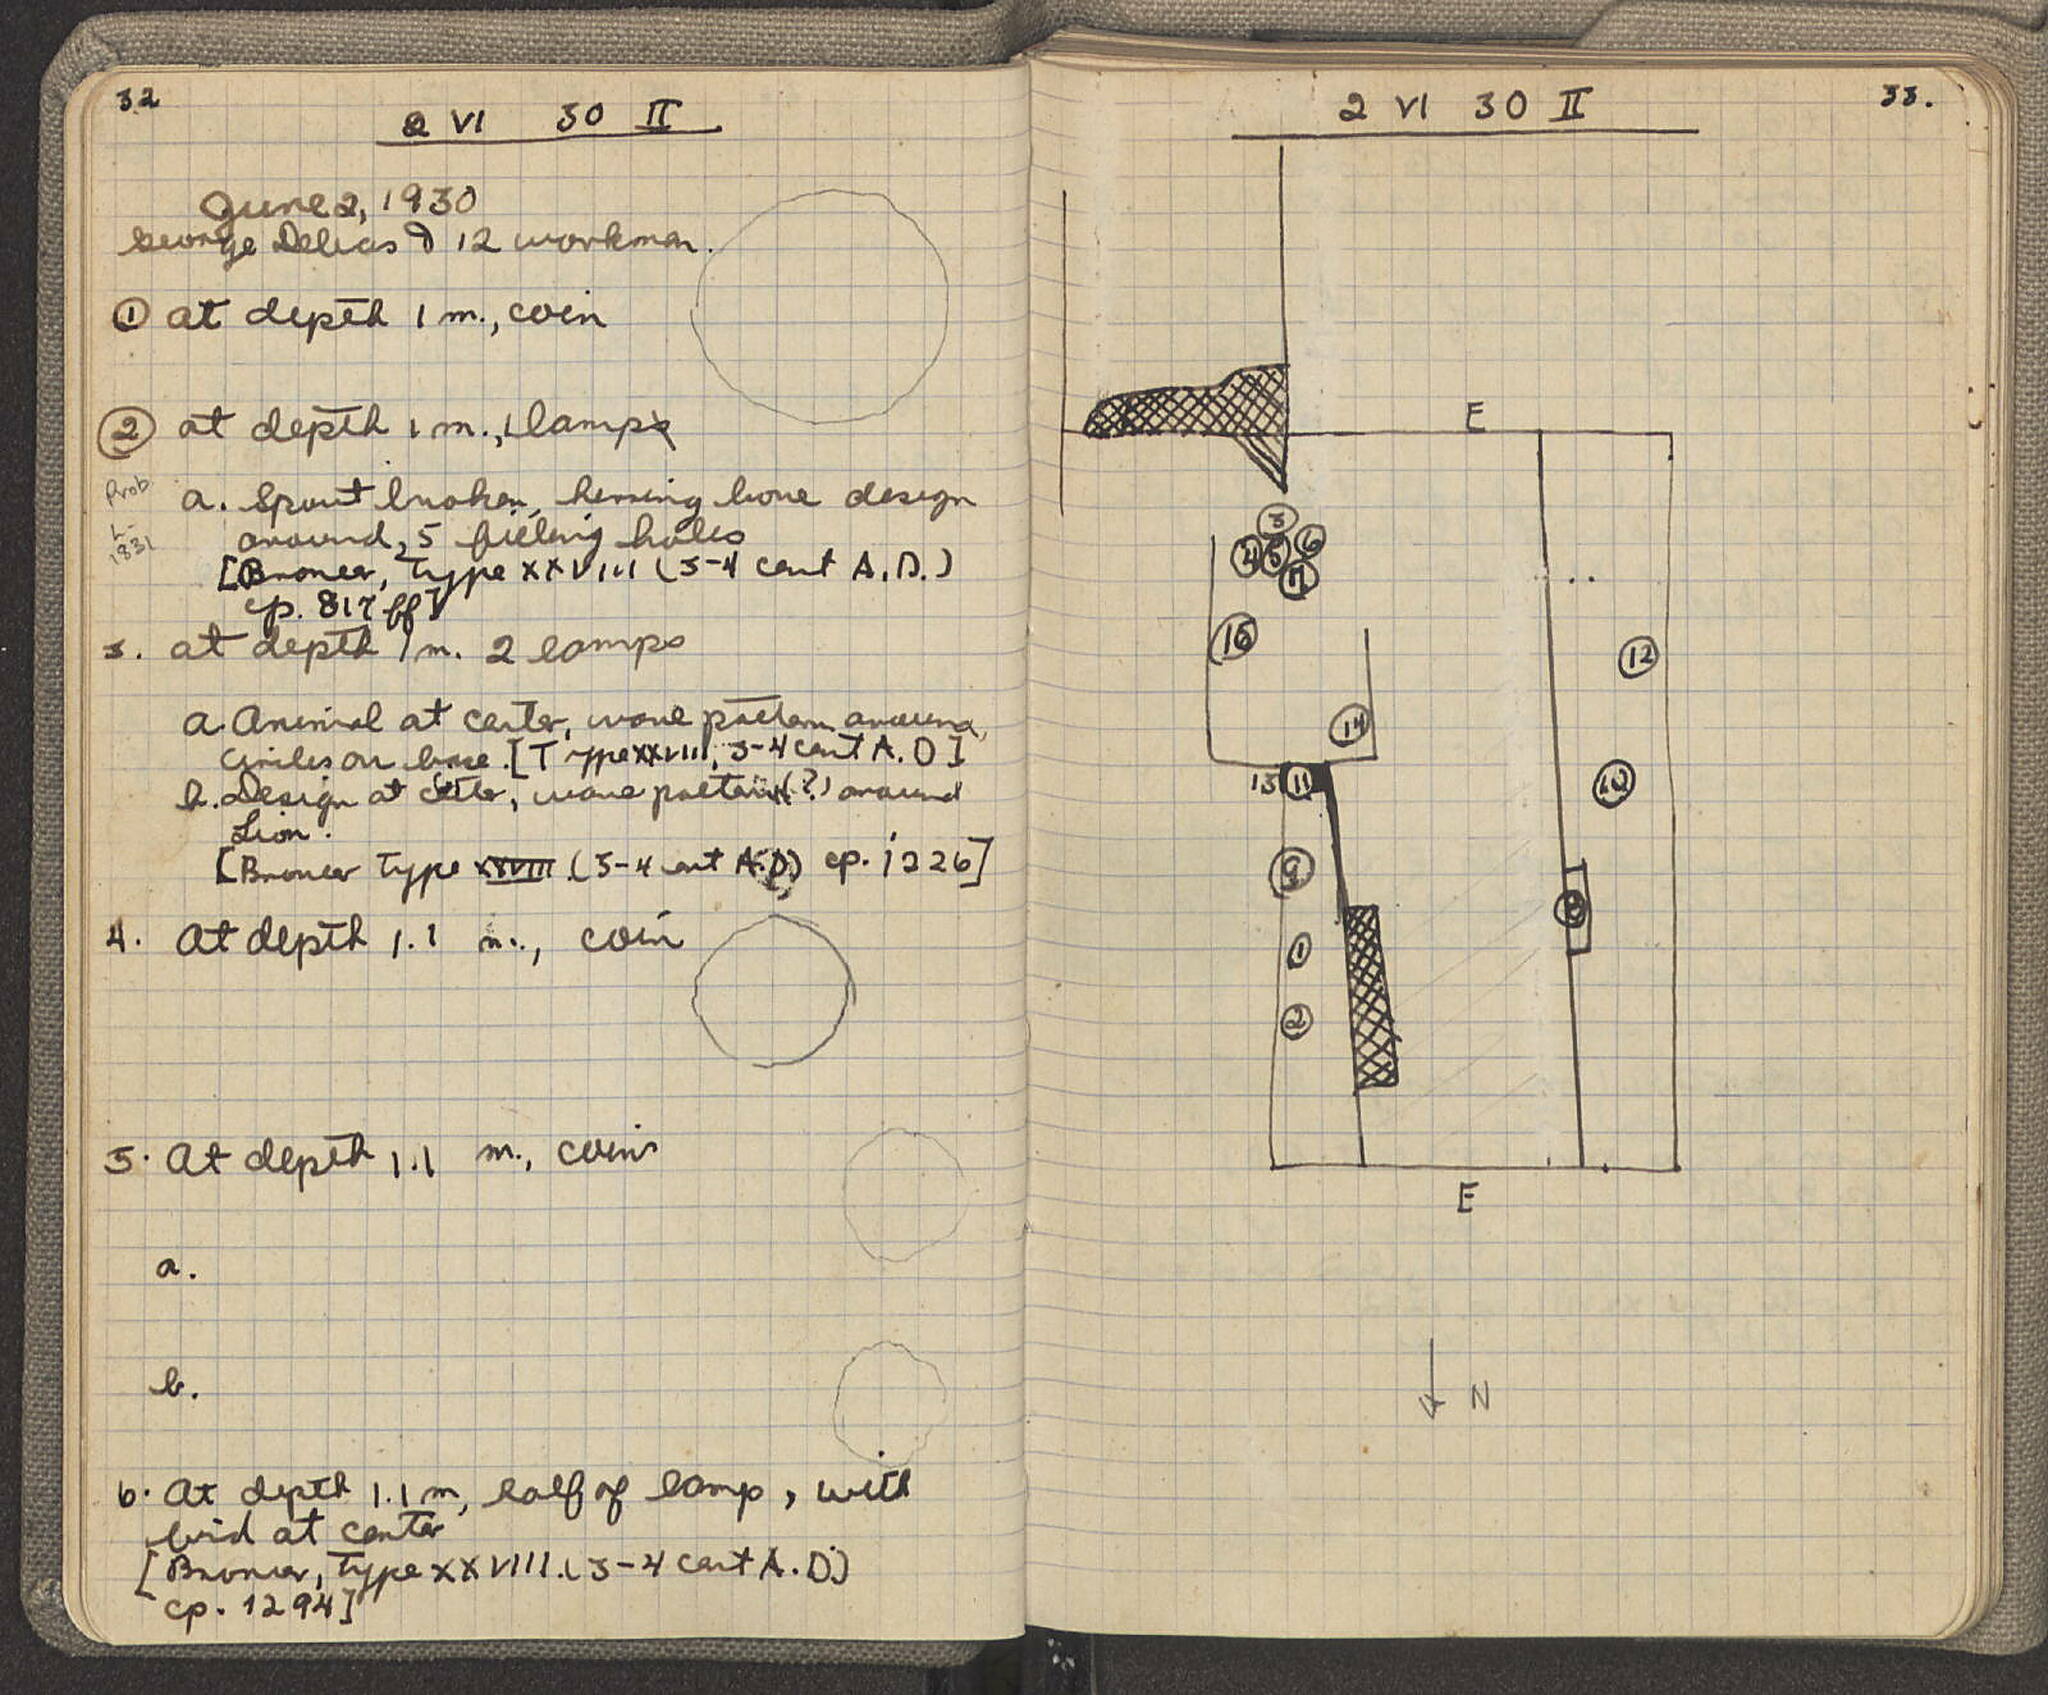 32
2 VI 30 II
June 2, 1930
George Delias & 12 workman.
① at depth 1 m., coin
② at depth 1 m., 1 lamps
Prob.
L-
1831
a. Spout broken, herring bone design
around, 5 filling holes
[Broneer, Type XXVIII (3-4 cent A.D.)
cp. 817 ff]
3. at depth 1 m. 2 lamps
a. Animal at center, wave pattern around,
circles on base. [Type XXVIII, 3-4 cent A.D]
b. Design at center, wave pattern (?) around
Lion.
[Broneer Type XXVIII (3-4 cent A.D.) cp. 1226]
4. At depth 1.1 m., coin
5. At depth 1.1 m., coins
a.
b.
6. At depth 1.1 m, half of lamp, with
bird at center
[Broneer, Type XXVIII. (3-4 cent A.D.)
cp. 1294]
2 VI 30 II
33.
E
3
4 5 6
7
16
12
14
13 11
10
9
8
1
2
E
N